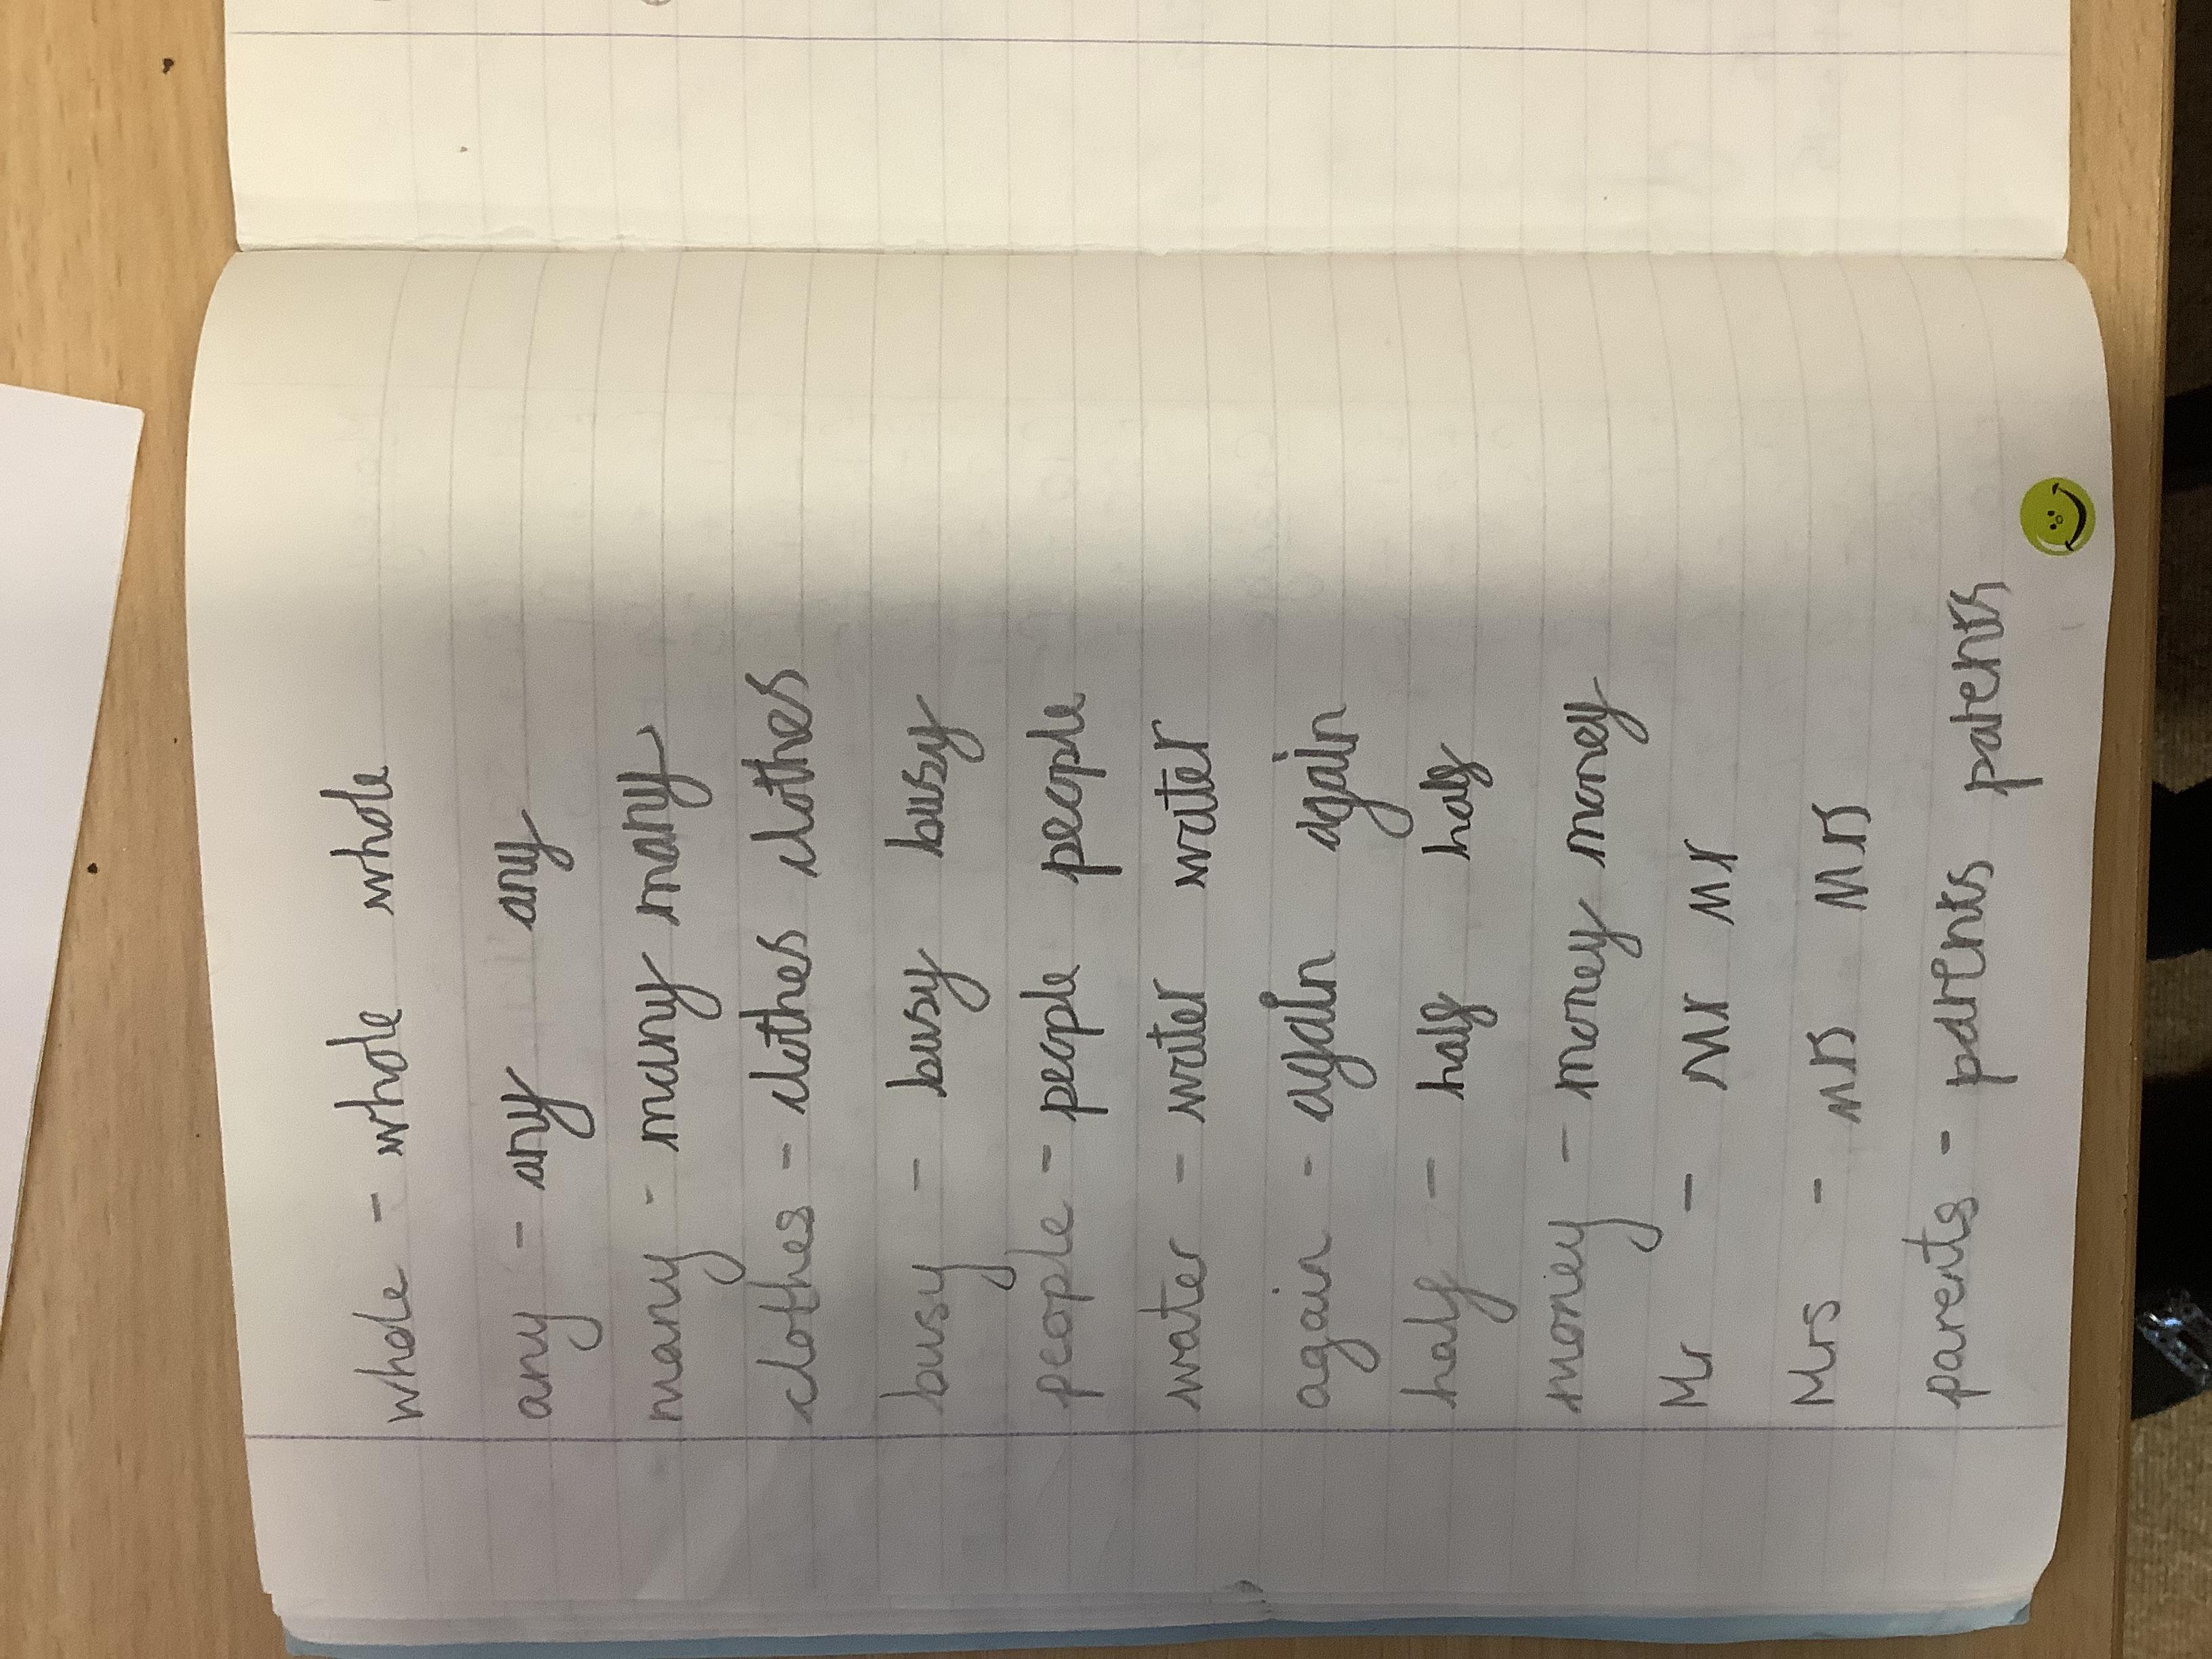 whole - whole whole
any - any any
many - many many
clothes - clothes clothes
busy - busy busy
people - people people
water - water water
again - again again
half - half half
money - money money
Mr - Mr Mr
Mrs - Mrs Mrs
parents - parents parents